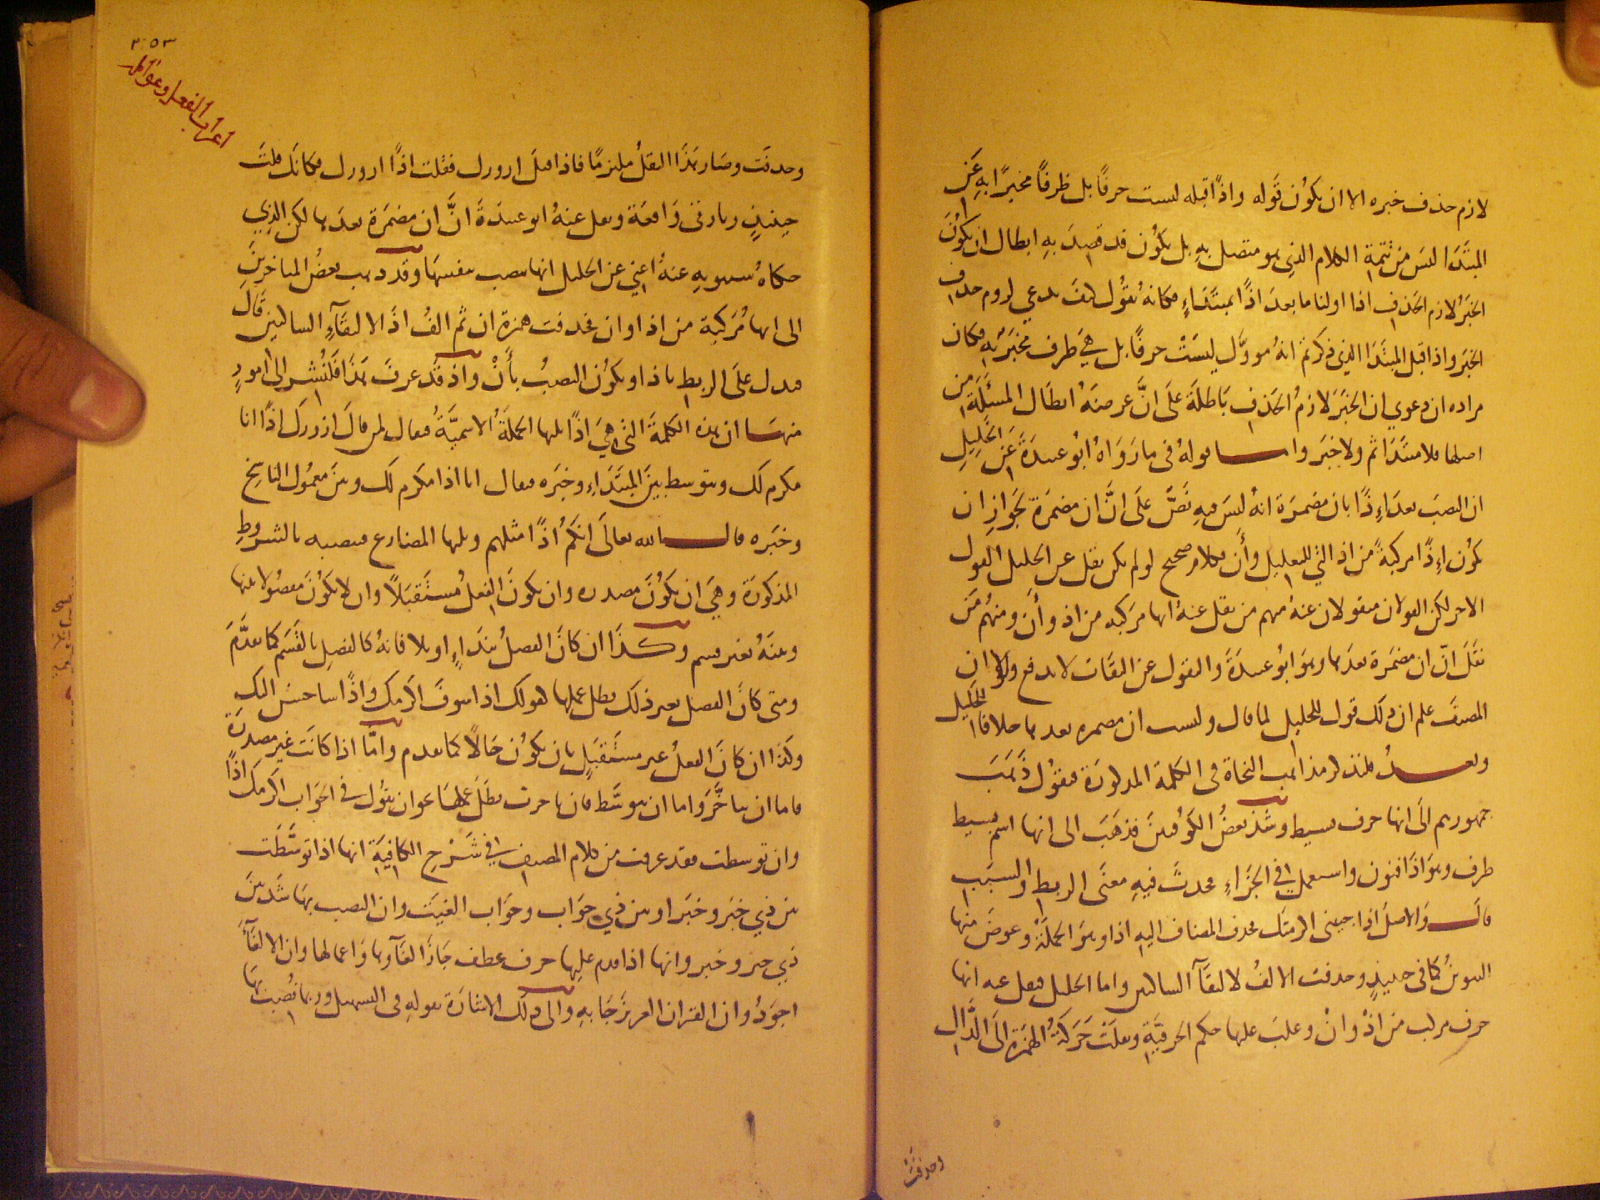 لازم حذف خبره الا ان يكون قوله واذا قبله ليست حرفا بل ظرفا مخبرا به عن
المبتدا ليس من تتمة الكلام الذي هو متصل به بل يكون قد قصد به ابطال ان يكون
الخبر لازم الحذف اذا اولنا ما بعد اذا بمبتداء فكانه يقول كيف يدعي لزوم حذف
الخبر واذا قبل المبتدا الذي ذكرتم انه مووَّل ليست حرفا بل هي ظرف مخبر به فكان
مراده ان دعوي ان الخبر لازم الحذف باطلة على انَّ غرضه ابطال المسئلة من
اصلها فلا مبتدا ثم ولا خبر واما قوله في ما رواه ابو عبيدة عن الخليل
ان النصب بعد اذًا بان مضمرة انه ليس فيه نصّ على انَّ ان مضمرة لجواز ان
تكون اذًا مركبة من اذ التي للتعليل وأن فكلام صحيح لو لم يكن نقل عن الخليل القول
الاخر لكن القولان منقولان عنه منهم من نقل عنه انها مركبة من اذ وأن ومنهم من
نقل انّ ان مضمرة بعدها وهو ابو عبيدة والنقول عن الثقات لا تدفع ولولا ان
المصنف علم ان ذلك قول للخليل لما قال وليست ان مضمره بعدها خلافا للخليل
وبعد فلنذكر مذاهب النحاة في الكلمة المذكورة فنقول ذهب
جمهورهم الى انها حرف بسيط وشذ بعض الكوفيين فذهب الى انها اسم بسيط
ظرف وهو اذا فنون واستعمل في الجزاء فحدث فيه معنى الربط والسبب
قال والاصل اذا جيتني اكرمتك فحذف المضاف اليه اذا وهو الجملة وعوض منها
التنوين كما في حينيذ وحذفت الالف لالتقآ الساكنين واما الخليل فنقل عنه انها
حرف مركب من اذ وان وغلب عليها حكم الحرفية ونقلت حركة الهمزة الى الذال
وحذفت
٢٠٥٣
اعراب الفعل وعوامله
وحذفت وصار هذا النقل ملتزما فاذا قيل ازورك فقلت اذًا ازورك فكانك قلت
حينيذ زيارتي واقعة ونقل عنه ابو عبيدة انَّ ان مضمرة بعدها لكن الذي
حكاه سيبويه عنه اعني عن الخليل انها تنصب بنفسها وقد ذهب بعض المتاخرين
الى انها مركبة من اذا وان فحذفت همزة ان ثم الف اذا لالتقآء الساكنين قال
فدل على الربط باذا ويكون النصب بأن واذ قد عرفت هذا فلنشر الى امور
منها ان هذه الكلمة التي هي اذًا يليها الجملة الاسميَّة فيقال لمن قال ازورك اذًا انا
مكرم لك وتتوسط بين المبتداء وخبره فيقال انا اذا مكرم لك وبين معمول الناسخ
وخبره قال الله تعالى انكم اذًا مثلهم ويليها المضارع فتنصبه بالشروط
المذكورة وهي ان تكون مصدره وان يكون الفعل مستقبلا وان لا يكون مفصولا بينها
وبينه بغير قسم وكذا ان كان الفصل بنداء او بلا فانه كالفصل بالقسم كما تقدّم
ومتى كان الفصل بغير ذلك بطل عملها كقولك اذا سوف اكرمك واذًا ساحسن اليك
وكذا ان كان الفعل غير مستقبل بان يكون حالا كما تقدم وامّا اذا كانت غير مصدرة
فاما ان تتاخّر واما ان تتوسّط فان تاخرت بطل عملها نحو ان يقول في الجواب اكرمك اذًا
وان توسطت فقد عرفت من كلام المصنف في شرح الكافية انها اذا توسّطت
بين ذي خبر وخبر او بين ذي جواب وجواب الغيت وان النصب بها شذ بين
ذي خبر وخبر وانها اذا تقدم عليها حرف عطف جاز الغآوها واعمالها وان الالغآء
اجود وان القران العزيز جا به والى ذلك الاشارة بقوله في التسهيل وربما نُصبَ بها